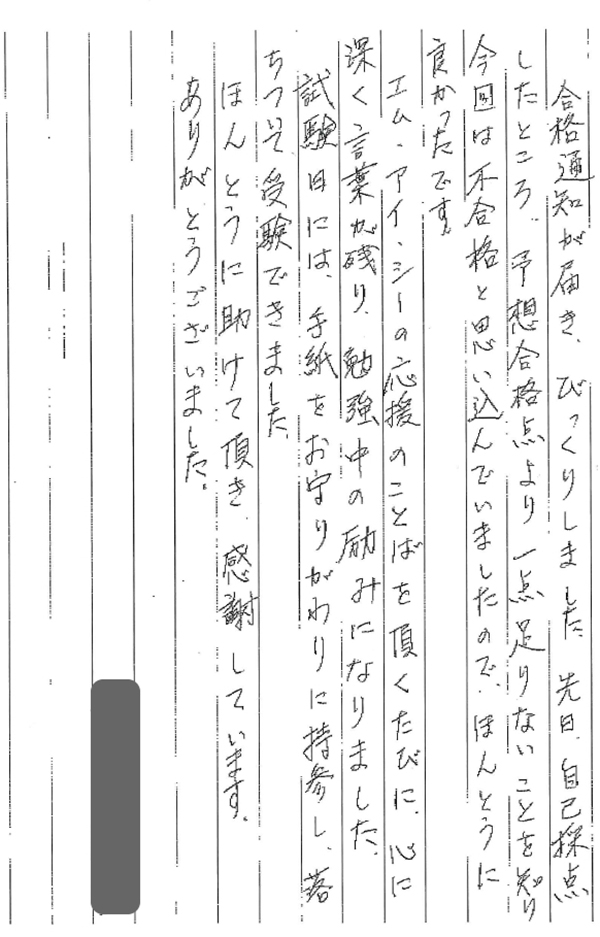 合格通知が届き、びっくりしました。先日、自己採点
したところ、予想合格点より一点足りないことを知り
今回は不合格と思い込んでいましたので、ほんとうに
良かったです。
エム・アイ・シーの応援のことばを頂くたびに、心に
深く言葉が残り、勉強中の励みになりました。
試験日には、手紙をお守りがわりに持参し、落
ちついて受験できました。
ほんとうに助けて頂き、感謝しています。
ありがとうございました。